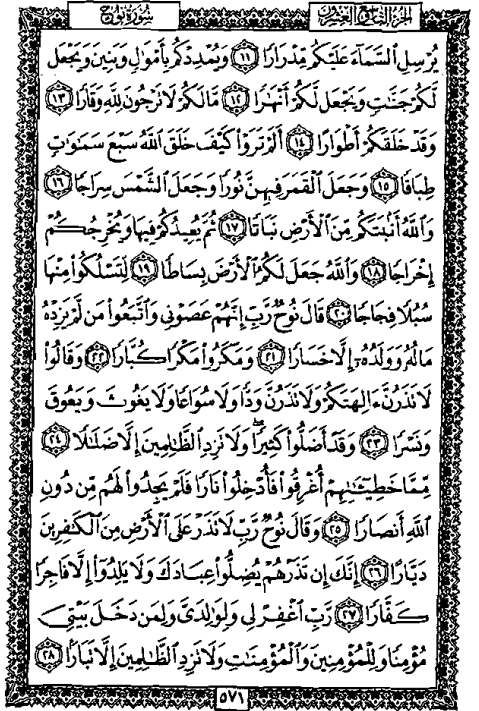 سُورَةُ نُوحٍ
الجُزْءُ التَّاسِعُ وَالعِشْرُونَ
يُرْسِلِ ٱلسَّمَآءَ عَلَيْكُم مِّدْرَارًا ۝١١ وَيُمْدِدْكُم بِأَمْوَٰلٍ وَبَنِينَ وَيَجْعَل
لَّكُمْ جَنَّـٰتٍ وَيَجْعَل لَّكُمْ أَنْهَـٰرًا ۝١٢ مَّا لَكُمْ لَا تَرْجُونَ لِلَّهِ وَقَارًا ۝١٣
وَقَدْ خَلَقَكُمْ أَطْوَارًا ۝١٤ أَلَمْ تَرَوْا۟ كَيْفَ خَلَقَ ٱللَّهُ سَبْعَ سَمَـٰوَٰتٍ
طِبَاقًا ۝١٥ وَجَعَلَ ٱلْقَمَرَ فِيهِنَّ نُورًا وَجَعَلَ ٱلشَّمْسَ سِرَاجًا ۝١٦
وَٱللَّهُ أَنۢبَتَكُم مِّنَ ٱلْأَرْضِ نَبَاتًا ۝١٧ ثُمَّ يُعِيدُكُمْ فِيهَا وَيُخْرِجُكُمْ
إِخْرَاجًا ۝١٨ وَٱللَّهُ جَعَلَ لَكُمُ ٱلْأَرْضَ بِسَاطًا ۝١٩ لِّتَسْلُكُوا۟ مِنْهَا
سُبُلًا فِجَاجًا ۝٢٠ قَالَ نُوحٌ رَّبِّ إِنَّهُمْ عَصَوْنِى وَٱتَّبَعُوا۟ مَن لَّمْ يَزِدْهُ
مَالُهُۥ وَوَلَدُهُۥٓ إِلَّا خَسَارًا ۝٢١ وَمَكَرُوا۟ مَكْرًا كُبَّارًا ۝٢٢ وَقَالُوا۟
لَا تَذَرُنَّ ءَالِهَتَكُمْ وَلَا تَذَرُنَّ وَدًّا وَلَا سُوَاعًا وَلَا يَغُوثَ وَيَعُوقَ
وَنَسْرًا ۝٢٣ وَقَدْ أَضَلُّوا۟ كَثِيرًا ۖ وَلَا تَزِدِ ٱلظَّـٰلِمِينَ إِلَّا ضَلَـٰلًا ۝٢٤
مِّمَّا خَطِيٓـَٔـٰتِهِمْ أُغْرِقُوا۟ فَأُدْخِلُوا۟ نَارًا فَلَمْ يَجِدُوا۟ لَهُم مِّن دُونِ
ٱللَّهِ أَنصَارًا ۝٢٥ وَقَالَ نُوحٌ رَّبِّ لَا تَذَرْ عَلَى ٱلْأَرْضِ مِنَ ٱلْكَـٰفِرِينَ
دَيَّارًا ۝٢٦ إِنَّكَ إِن تَذَرْهُمْ يُضِلُّوا۟ عِبَادَكَ وَلَا يَلِدُوٓا۟ إِلَّا فَاجِرًا
كَفَّارًا ۝٢٧ رَّبِّ ٱغْفِرْ لِى وَلِوَٰلِدَىَّ وَلِمَن دَخَلَ بَيْتِىَ
مُؤْمِنًا وَلِلْمُؤْمِنِينَ وَٱلْمُؤْمِنَـٰتِ وَلَا تَزِدِ ٱلظَّـٰلِمِينَ إِلَّا تَبَارًۢا ۝٢٨
٥٧١